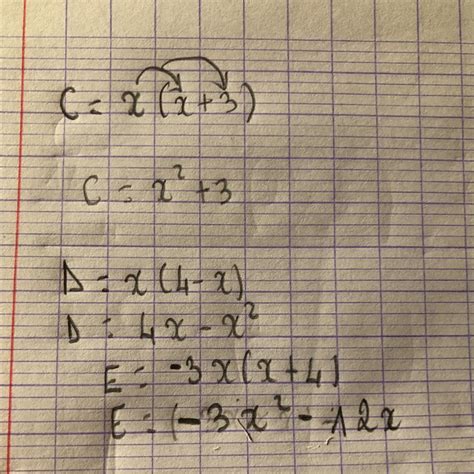 C = x (x + 3)
C = x² + 3
D = x (4 - x)
D = 4x - x²
E = -3x (x + 4)
E = (-3x² - 12x